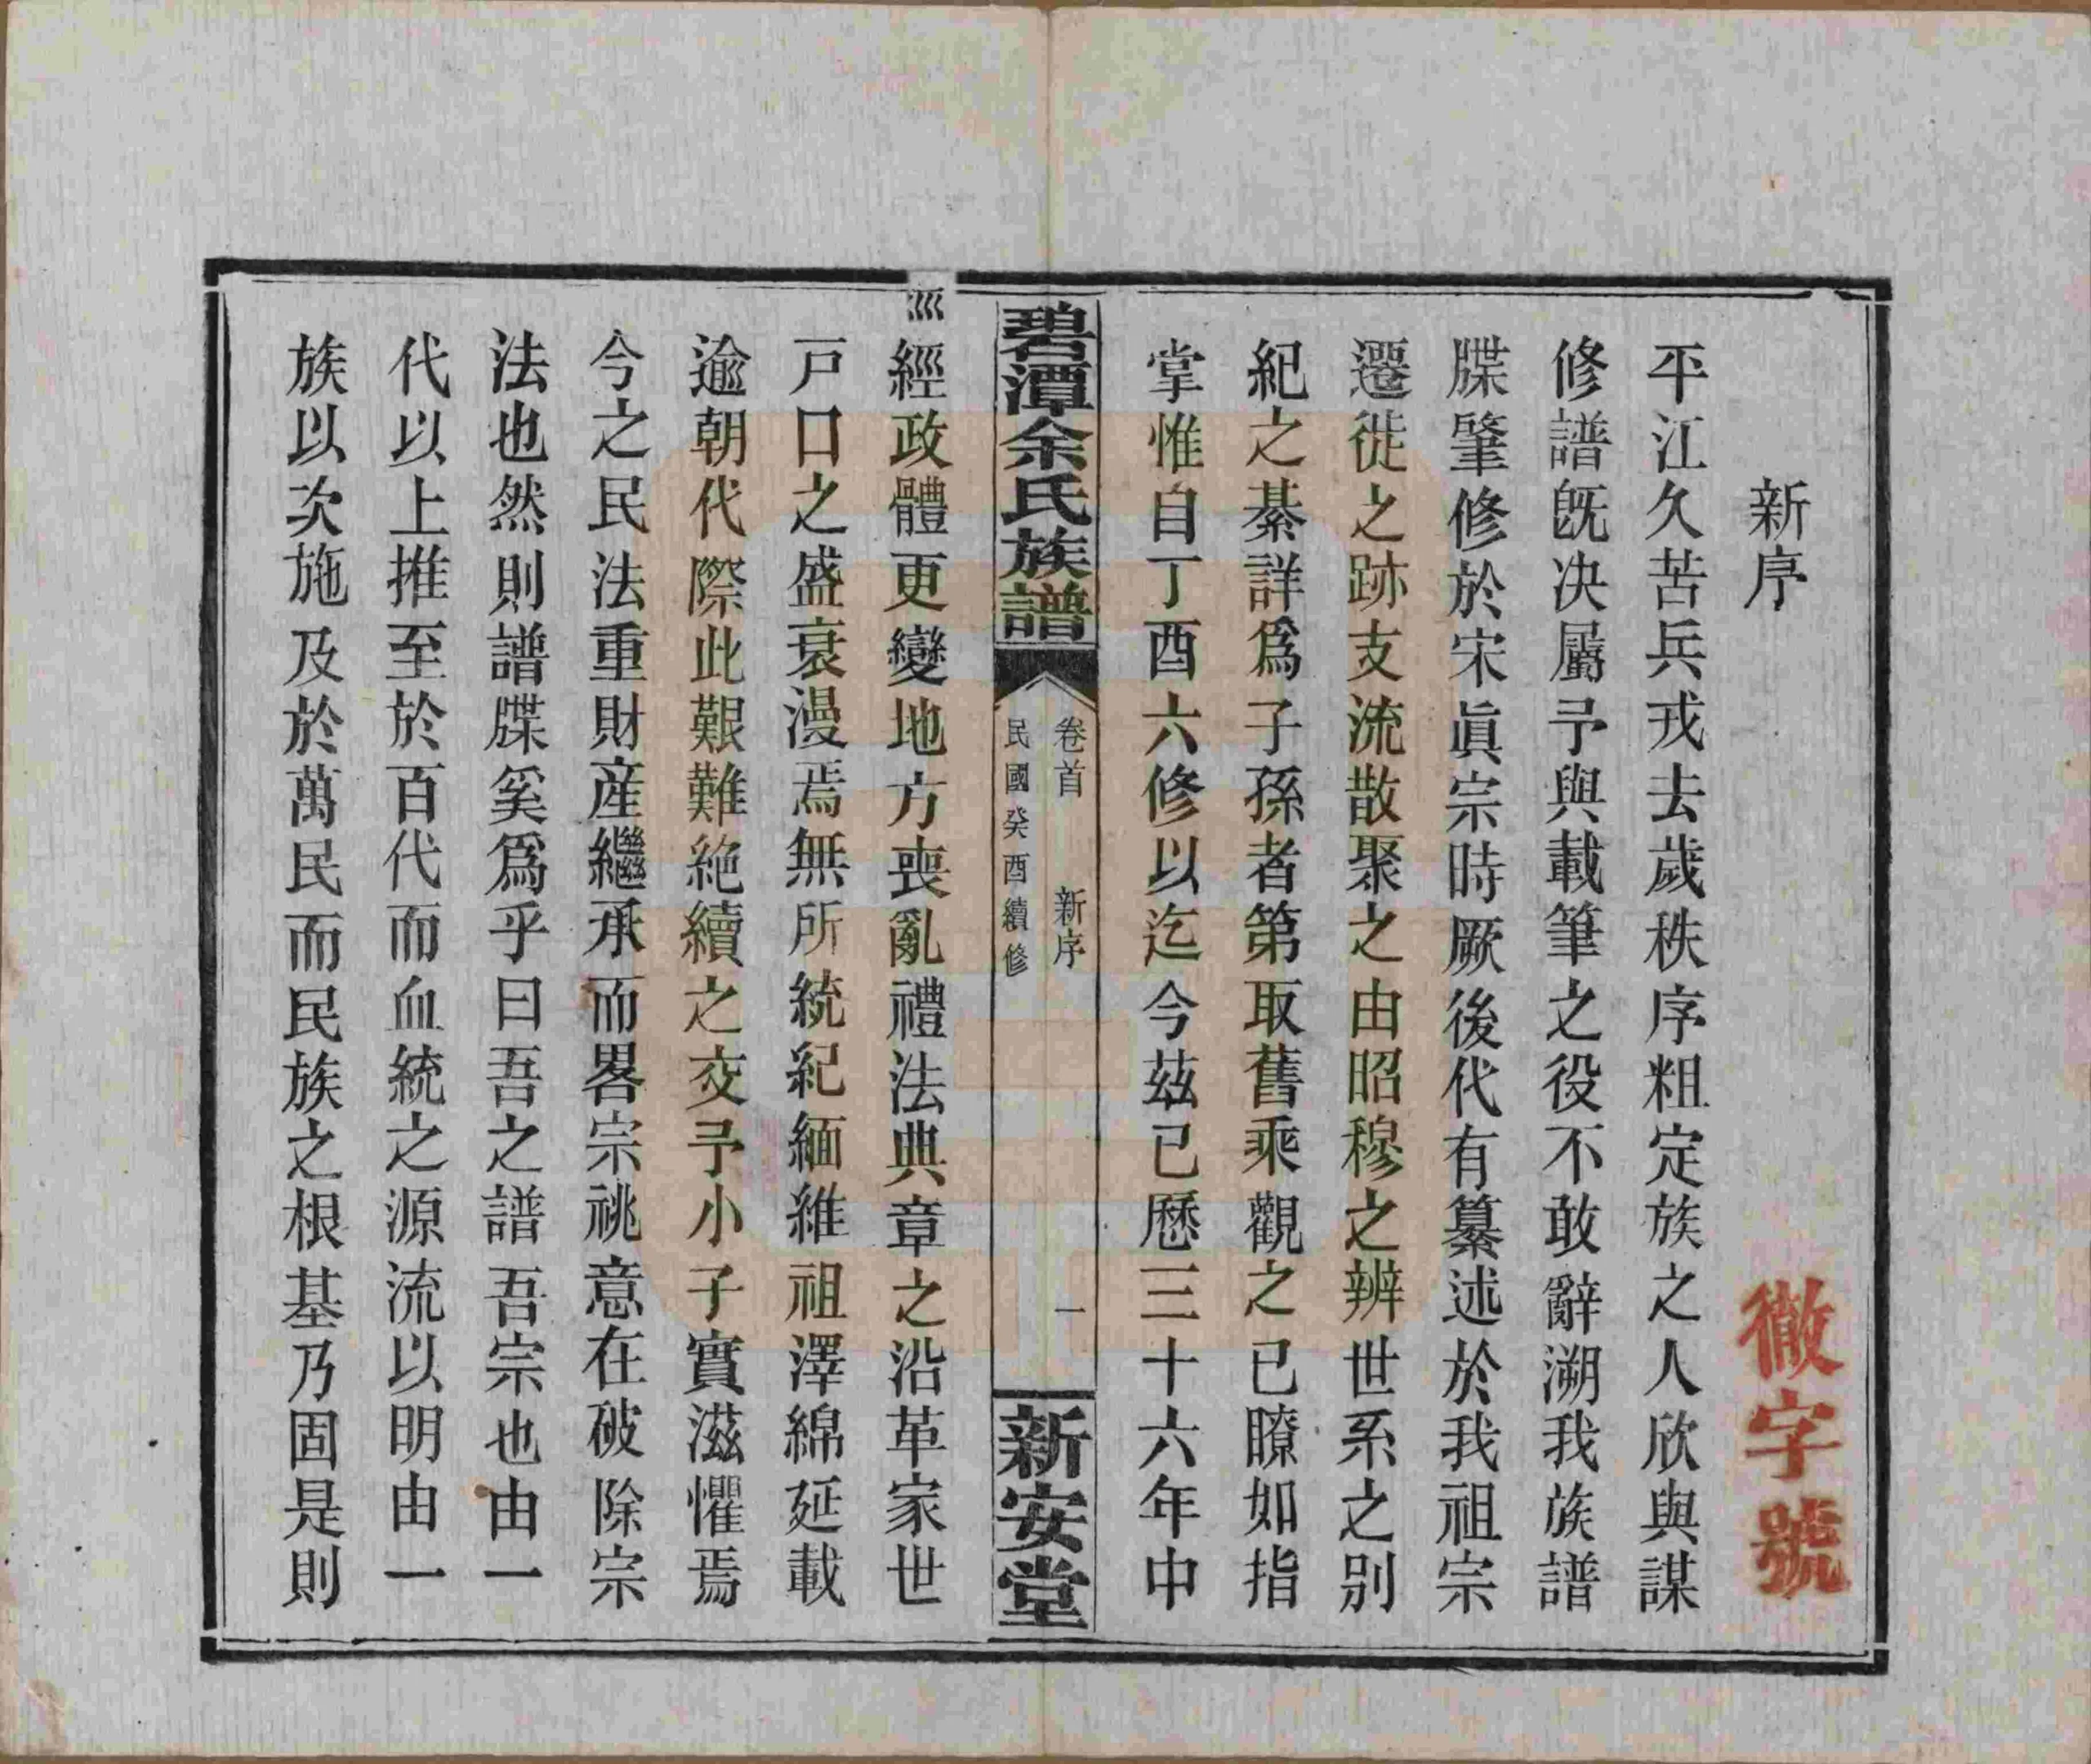 新序
徹字號
平江久苦兵戎去歲秩序粗定族之人欣與謀
修譜旣决屬予與載筆之役不敢辭溯我族譜
牒肇修於宋眞宗時厥後代有纂述於我祖宗
遷徙之跡支流散聚之由昭穆之辨世系之別
紀之綦詳爲子孫者第取舊乘觀之已瞭如指
掌惟自丁酉六修以迄今茲已歷三十六年中
碧潭余氏族譜
卷首 新序 一
民國癸酉續修
新安堂
經政體更變地方喪亂禮法典章之沿革家世
戸口之盛衰漫焉無所統紀緬維祖澤綿延載
逾朝代際此艱難絶續之交予小子實滋懼焉
今之民法重財産繼承而畧宗祧意在破除宗
法也然則譜牒奚爲乎曰吾之譜吾宗也由一
代以上推至於百代而血統之源流以明由一
族以次施及於萬民而民族之根基乃固是則